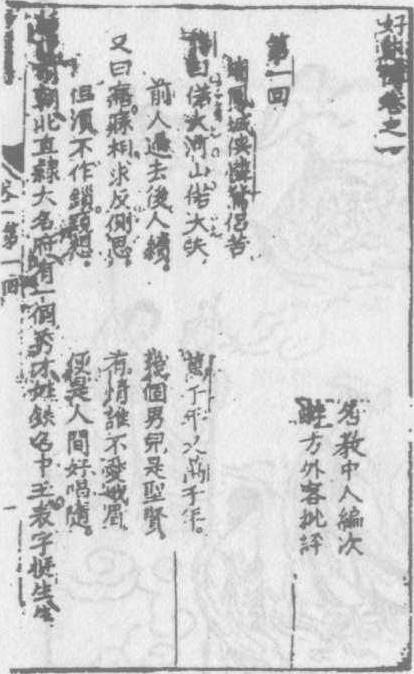 好逑傳卷之一
名教中人編次
方外客批評
第一回
鳳城俠憐鴛侶苦
曰偌大河山偌大天 萬千年又萬千年。
前人過去後人續。 幾個男兒是聖賢
又曰寤寐相求反側思。 有情誰不愛蛾眉。
但須不作鑽窺想。 便是人間好唱隨。
前朝北直隸大名府有一個秀才姓鉄名中玉表字挺生生
卷一第一回